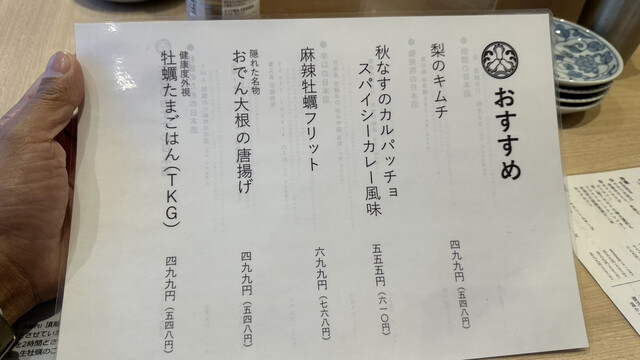 おすすめ
梨のキムチ
四九九円（五四八円）
秋なすのカルパッチョ
スパイシーカレー風味
五五五円（六一〇円）
麻辣牡蠣フリット
六九九円（七六八円）
隠れた名物
おでん大根の唐揚げ
四九九円（五四八円）
健康度外視
牡蠣たまごはん（TKG）
四九九円（五四八円）